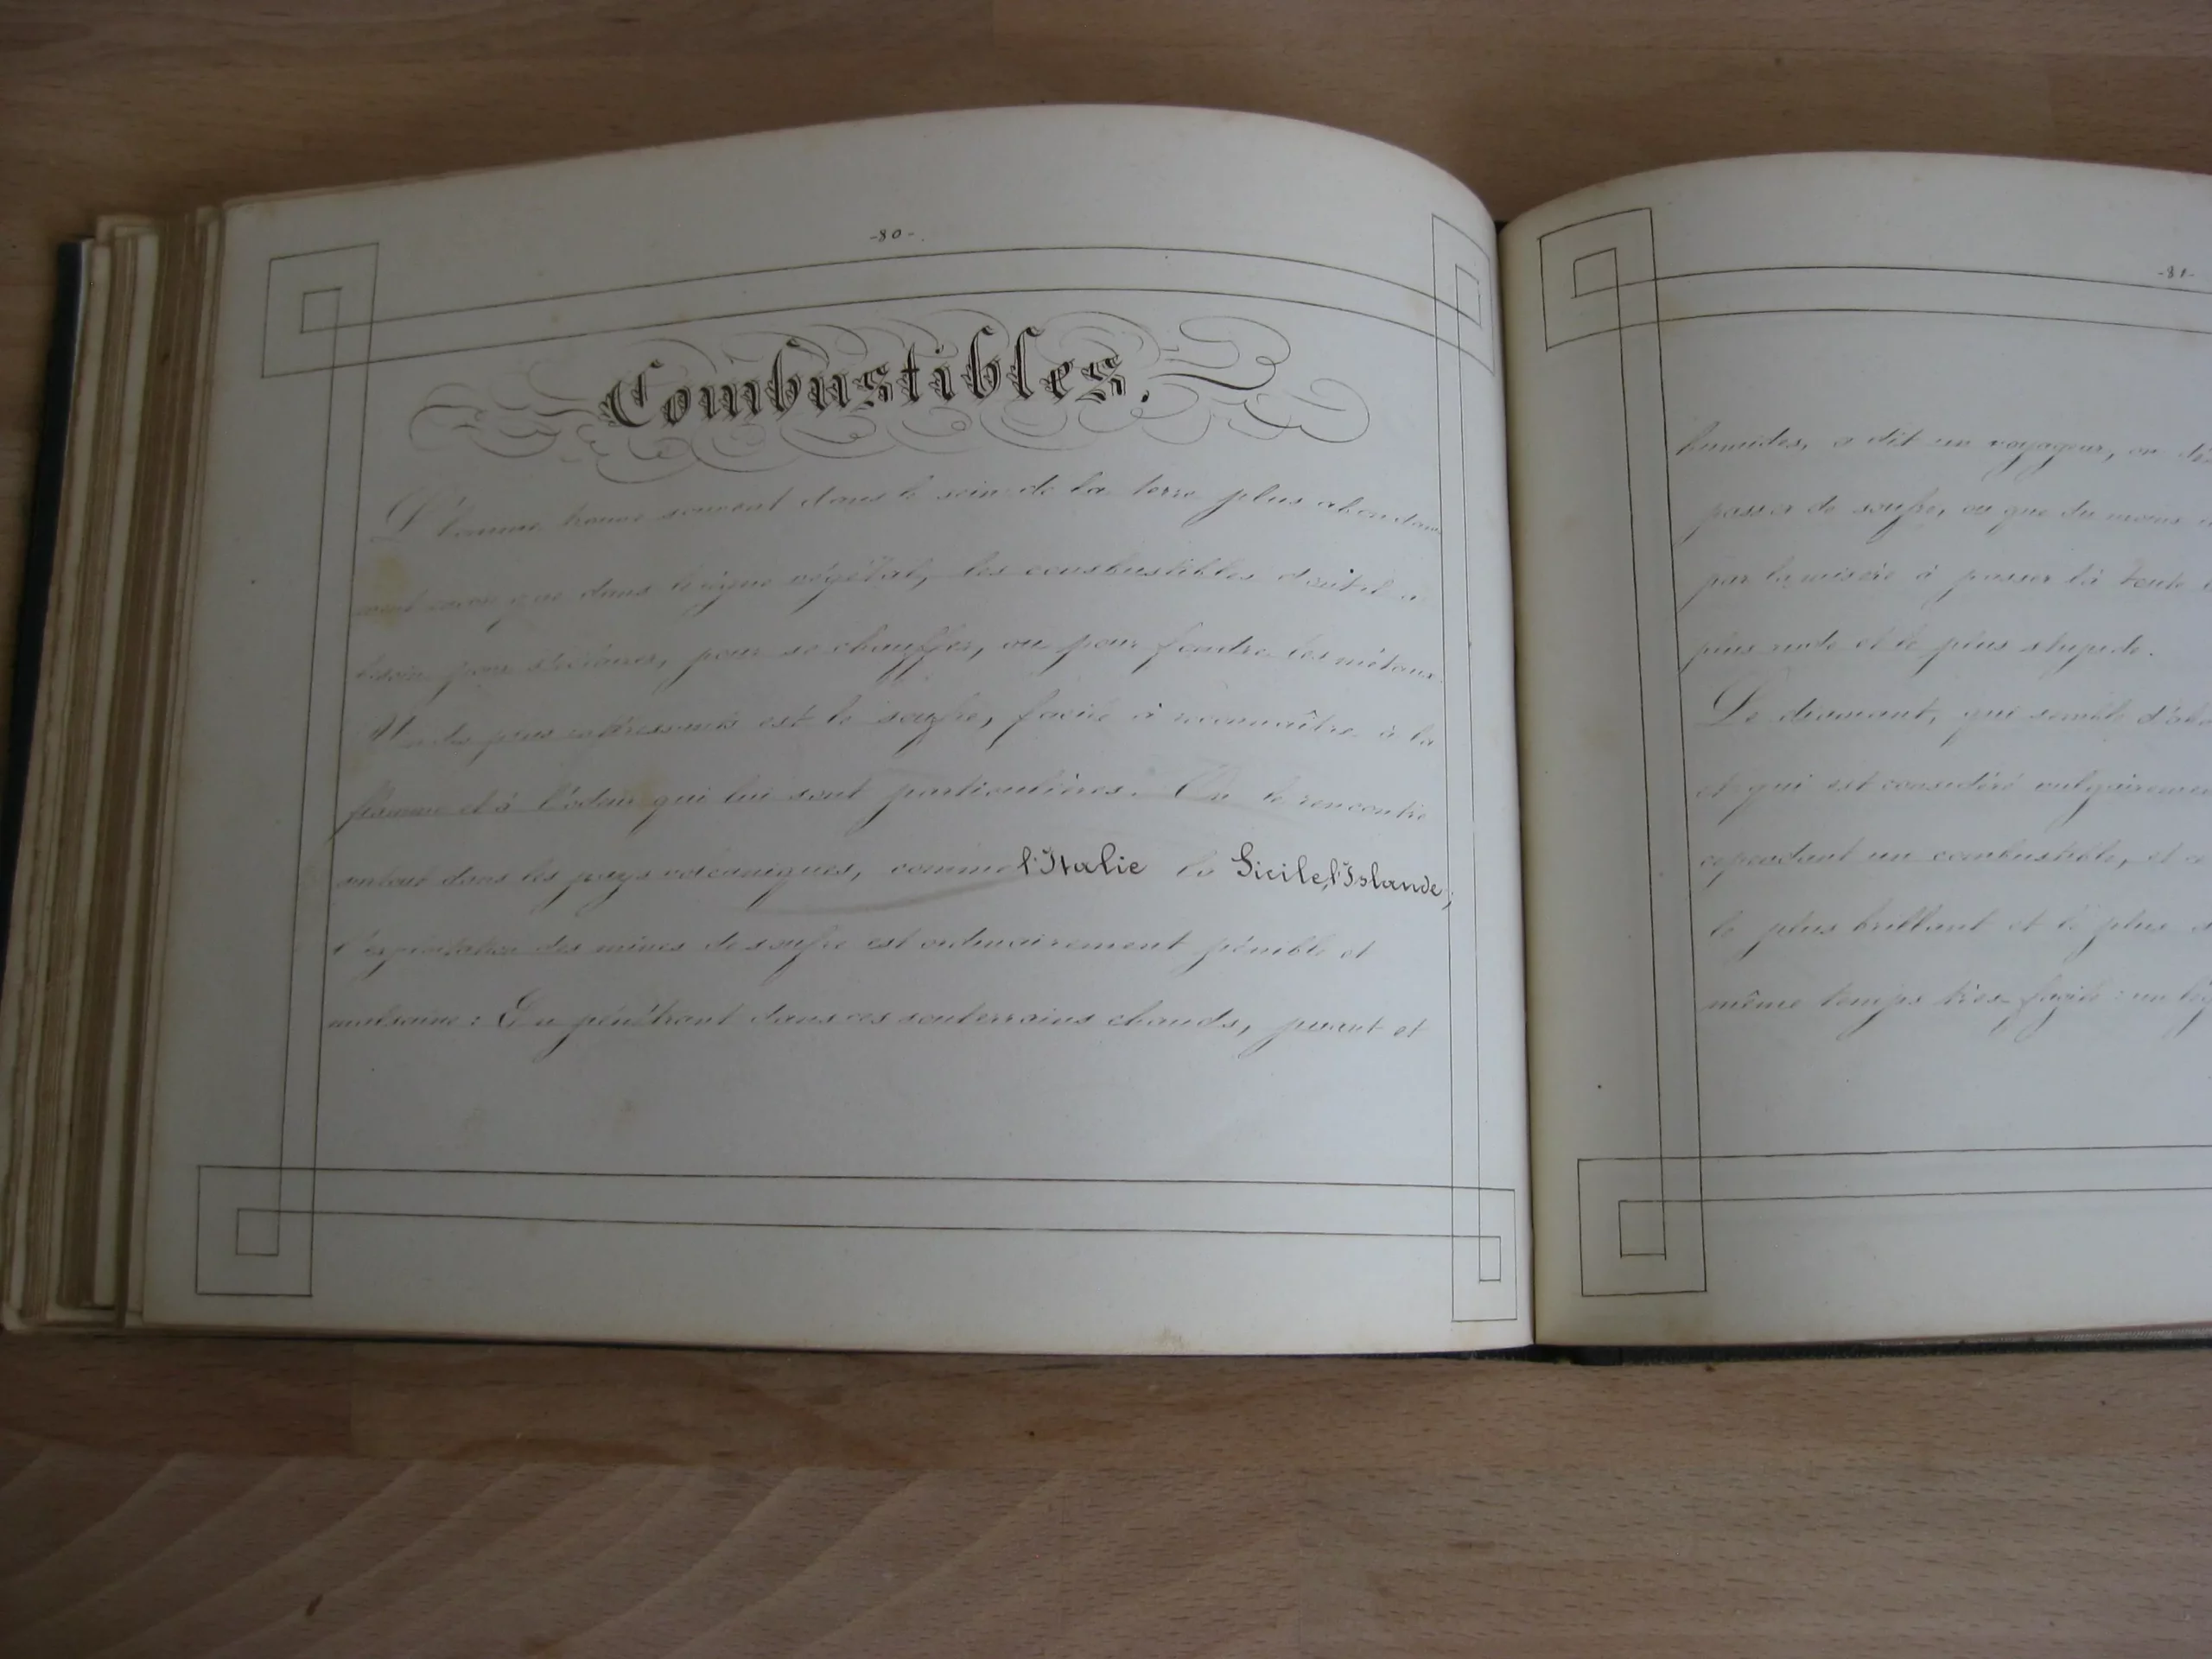 -80-.
Combustibles.
L'homme trouve souvent dans le sein de la terre plus abondam
ment encore que dans le règne végétal, les combustibles dont il a
besoin pour s'éclairer, pour se chauffer, ou pour fondre les métaux.
Un des plus intéressants est le soufre, facile à reconnaître à la
flamme et à l'odeur qui lui sont particulières. On le rencontre
surtout dans les pays volcaniques, comme l'Italie la Sicile, l'Islande;
l'exploitation des mines de soufre est ordinairement pénible et
malsaine: En pénétrant dans ces souterrains chauds, puant et
-81-
humides, a dit un voyageur, on
passer de soufre, ou que du moins
par la misère à passer là toute
plus rude et le plus stupide.
Le diamant, qui semble d'abo
et qui est considéré vulgairemen
cependant un combustible, et
le plus brillant et le plus
même temps très-fragile: un